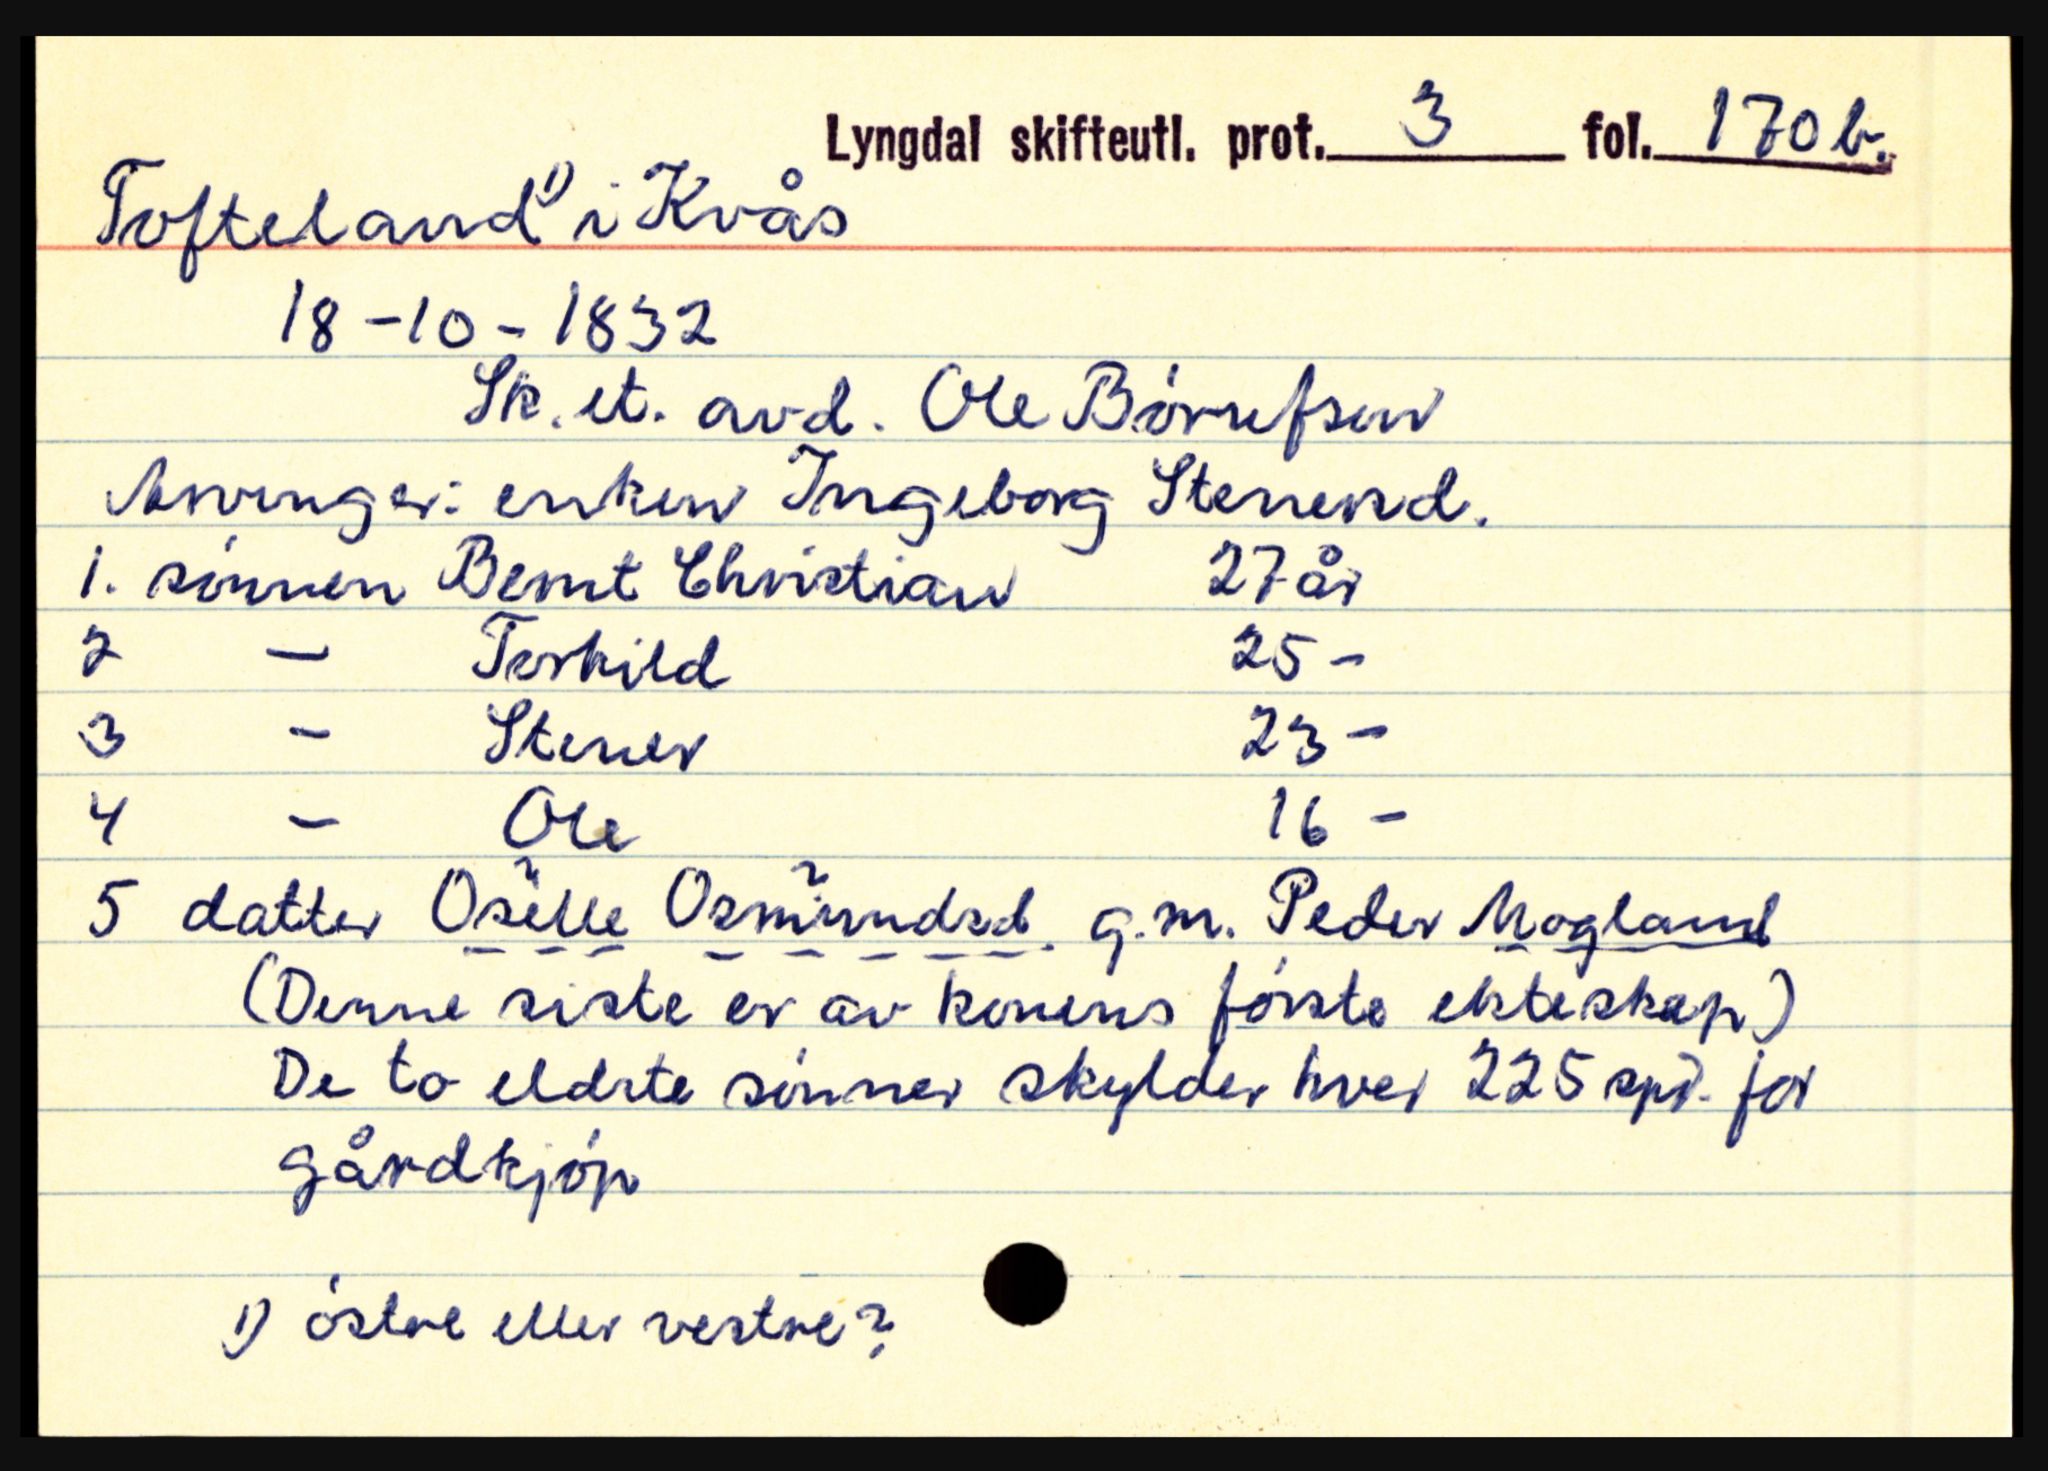 Lyngdal skifteutl. prot. 3 fol. 170 b.
Tofteland 1) i Kvås
18-10-1832
Sk. et. avd. Ole Børufsen
Arvinger: enken Ingeborg Stenersd.
1. sønnen Bernt Christian 27 år
2 - Torkild 25 -
3 - Stener 23 -
4 - Ole 16 -
5 datter Oselle ? Osmundsd. ? g.m. Peder Mogland
(Denne siste er av konens første ekteskap)
De to eldste sønner skylder hver 225 spd. for
gårdkjøp
1) østre eller vestre?